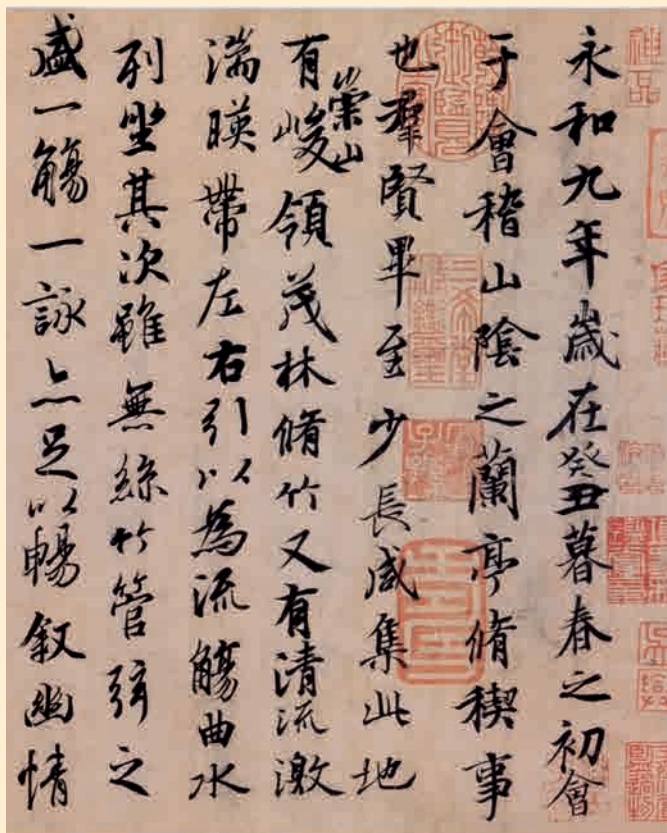 永和九年歲在癸丑暮春之初會
于會稽山陰之蘭亭脩稧事
也羣賢畢至少長咸集此地
有崇山峻領茂林脩竹又有清流激
湍暎帶左右引以為流觴曲水
列坐其次雖無絲竹管弦之
盛一觴一詠亦足以暢叙幽情
神品